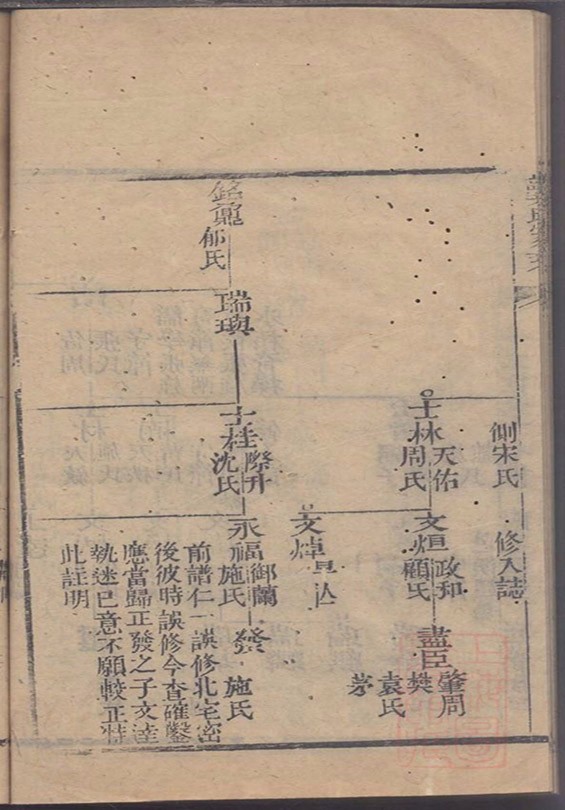 側宋氏
修入誌
士林
天佑
周氏
文烜
政和
顧氏
盡臣
肇周
樊
袁氏
茅
文焯
銘鼎
郁氏
瑞璵
士桂
際升
沈氏
永福
御蘭
施氏
發
施氏
前譜仁一誤修北宅密
後彼時誤修今查確鑿
應當歸正發之子文達
執迷已意不願較正特
此註明